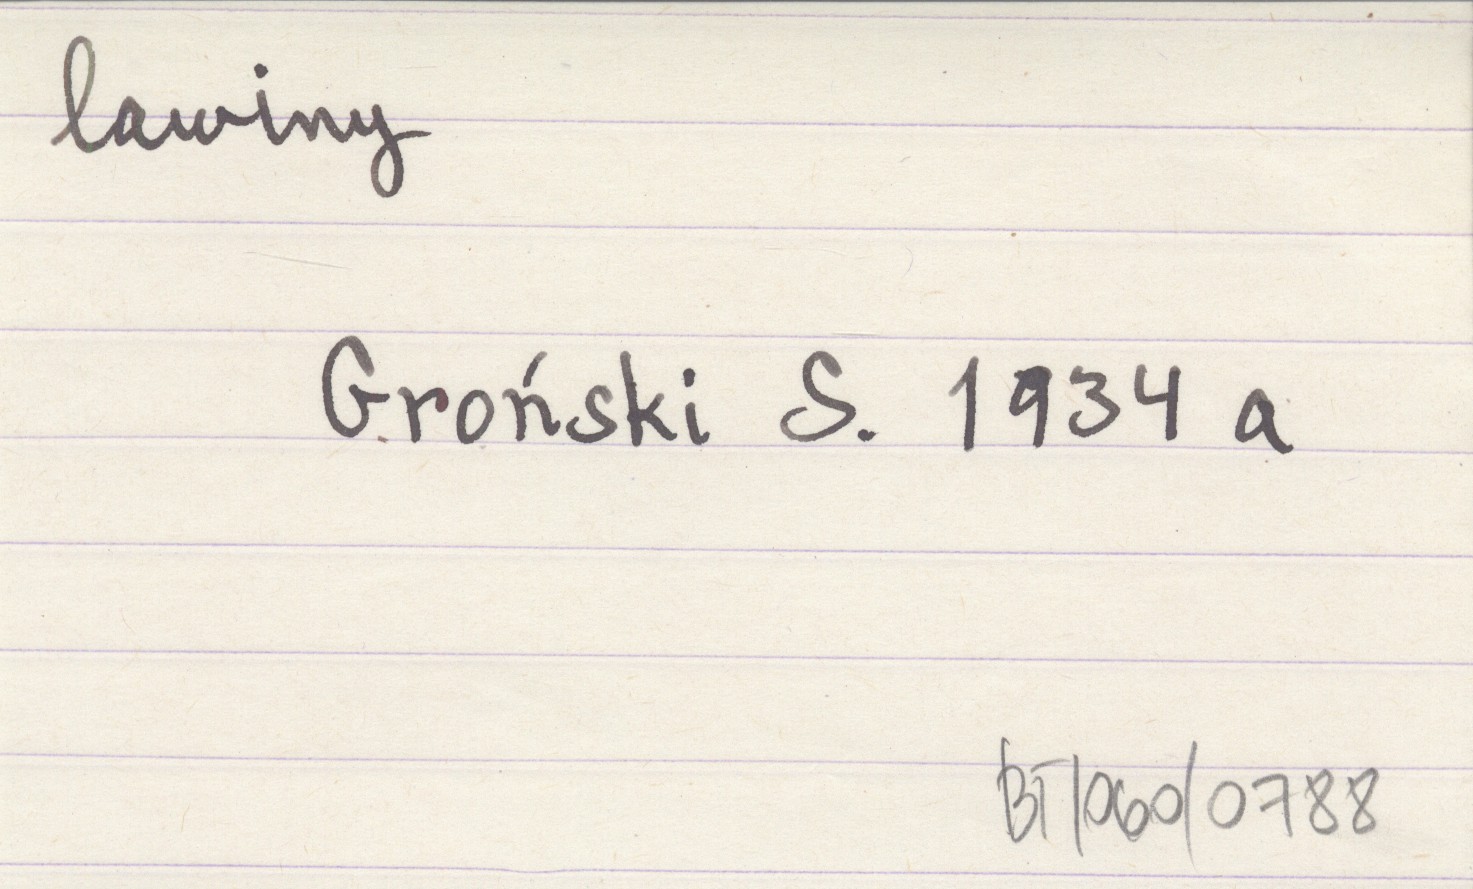 lawiny
Groński S. 1934 a
BT/060/0788